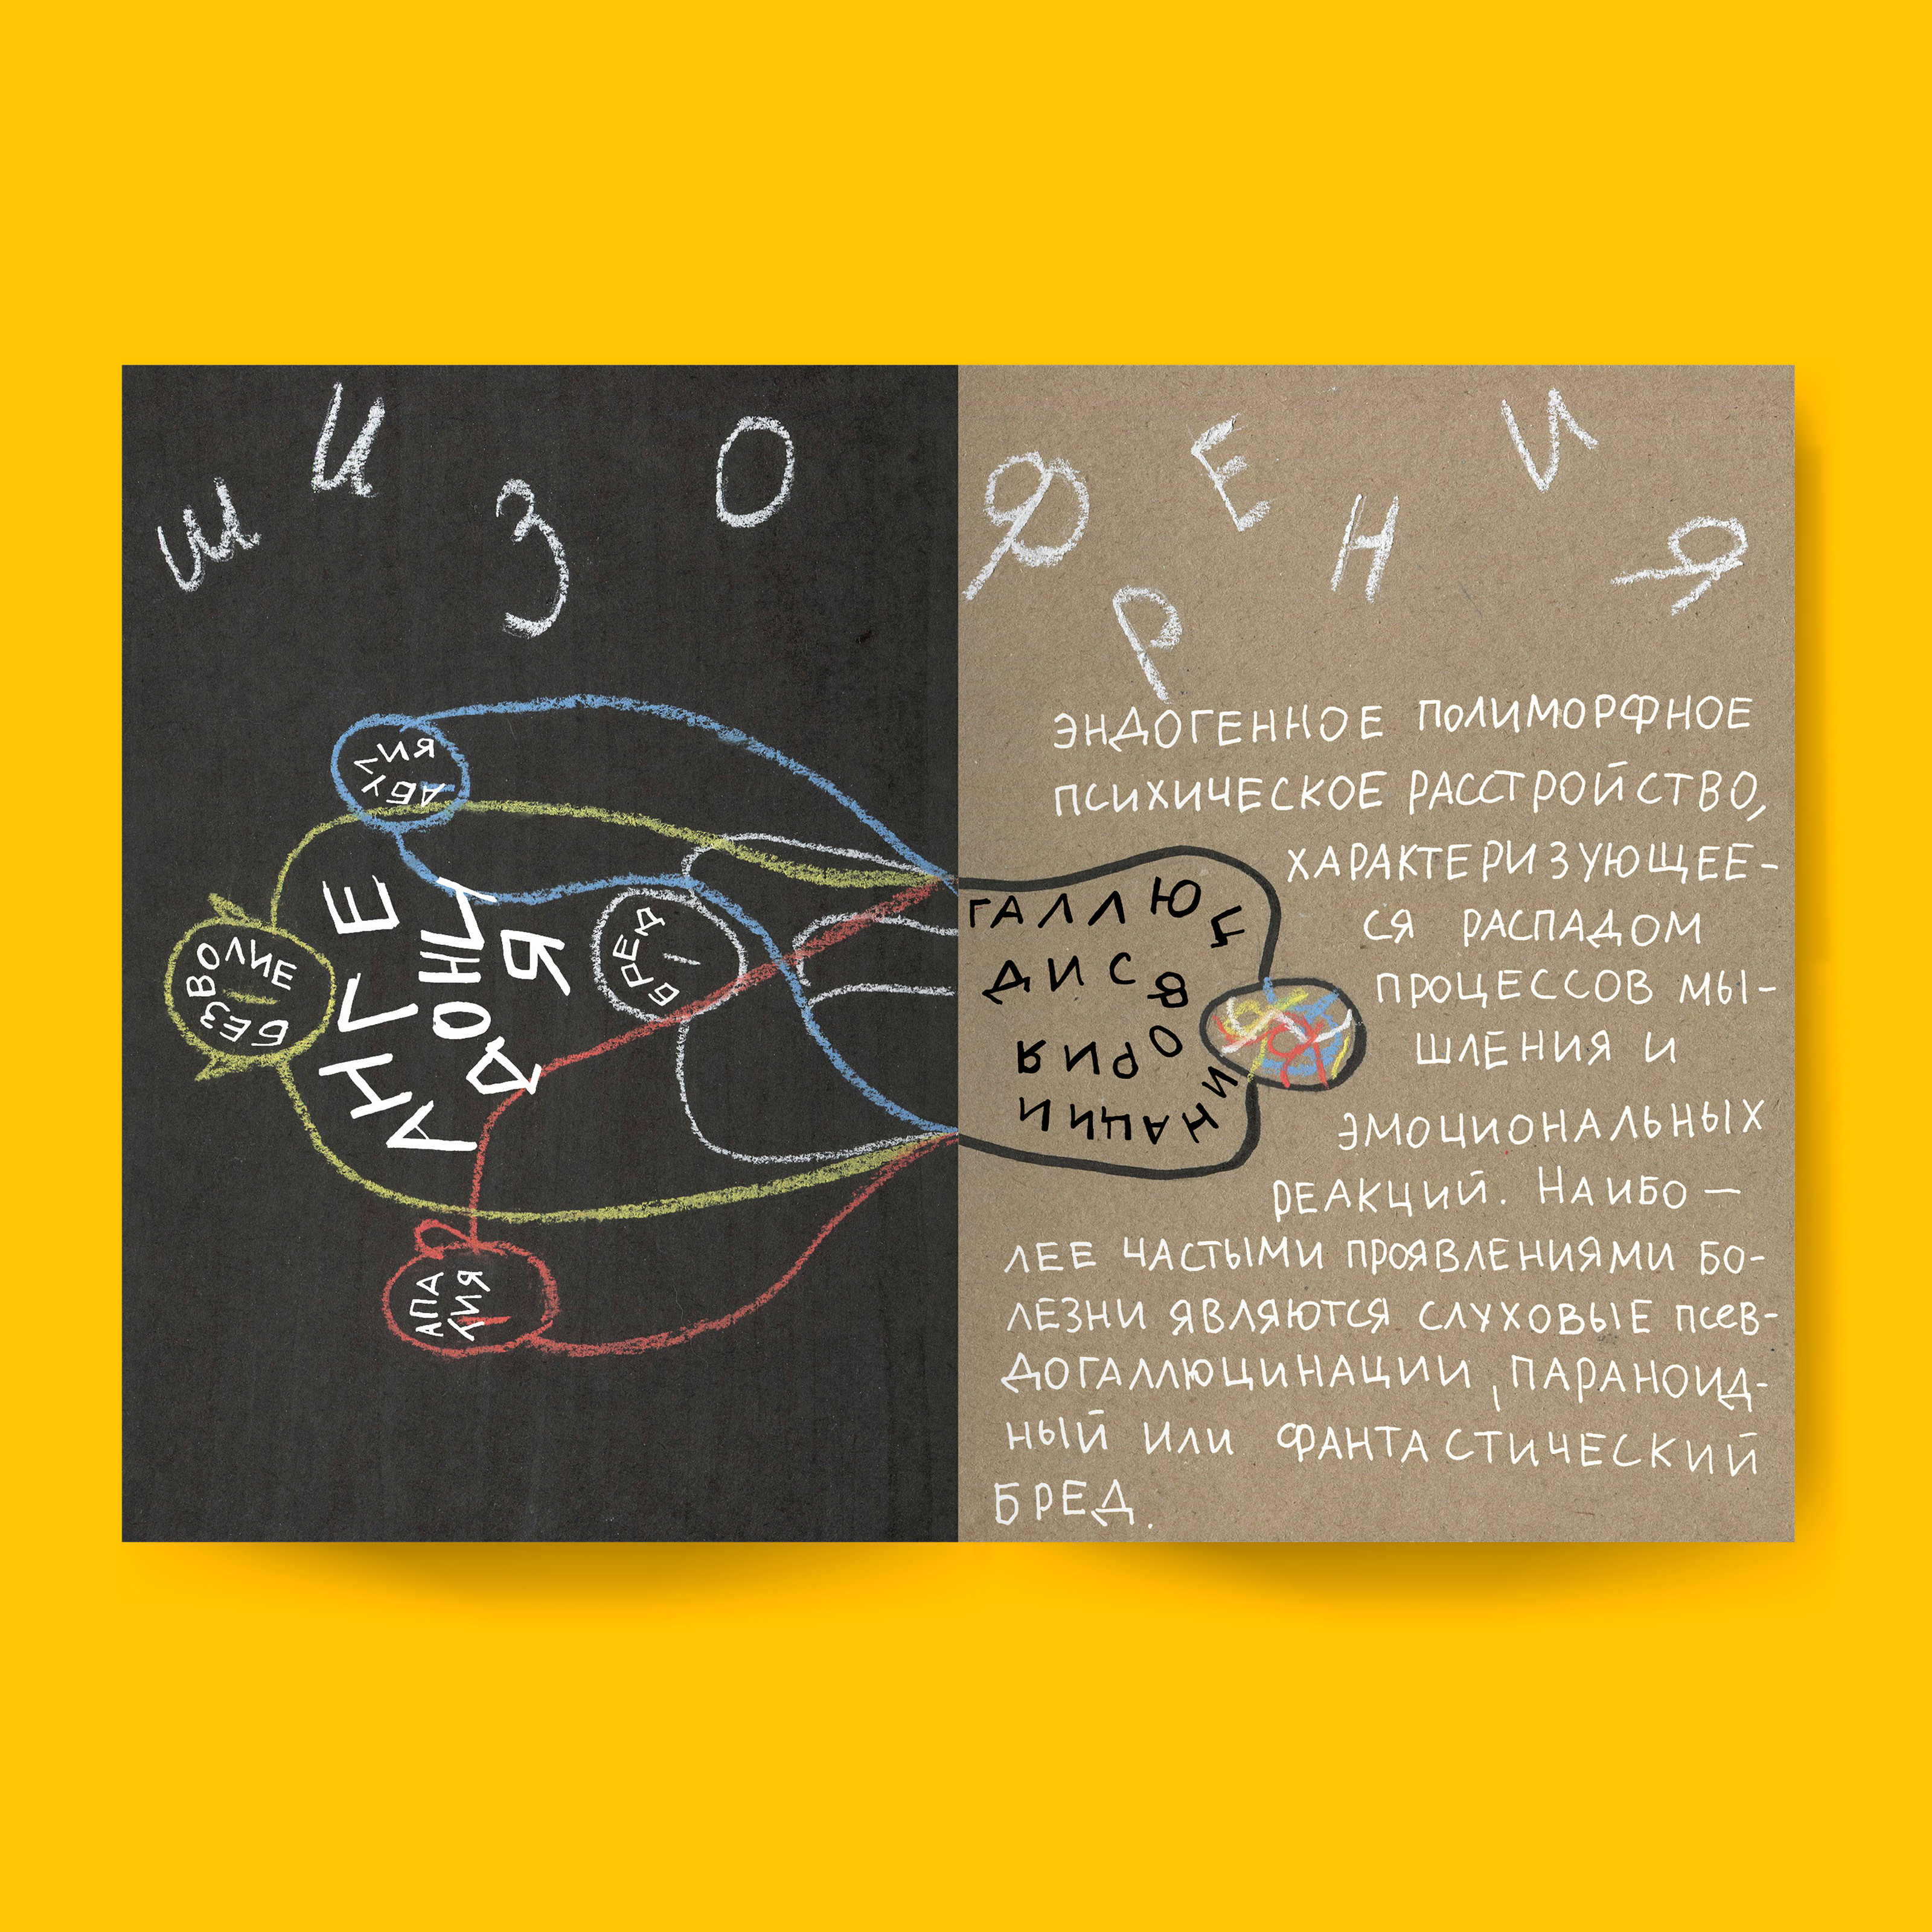 ШИЗОФРЕНИЯ
АБУЛИЯ
БЕЗВОЛИЕ
АНГЕ
ДОНИ
Я
БРЕД
АПА
ТИЯ
ГАЛЛЮЦИНАЦИИ
ДИСФОРИЯ
ЭНДОГЕННОЕ ПОЛИМОРФНОЕ
ПСИХИЧЕСКОЕ РАССТРОЙСТВО,
ХАРАКТЕРИЗУЮЩЕЕ-
СЯ РАСПАДОМ
ПРОЦЕССОВ МЫ-
ШЛЕНИЯ И
ЭМОЦИОНАЛЬНЫХ
РЕАКЦИЙ. НАИБО—
ЛЕЕ ЧАСТЫМИ ПРОЯВЛЕНИЯМИ БО-
ЛЕЗНИ ЯВЛЯЮТСЯ СЛУХОВЫЕ ПСЕВ-
ДОГАЛЛЮЦИНАЦИИ, ПАРАНОИД-
НЫЙ ИЛИ ФАНТАСТИЧЕСКИЙ
БРЕД.